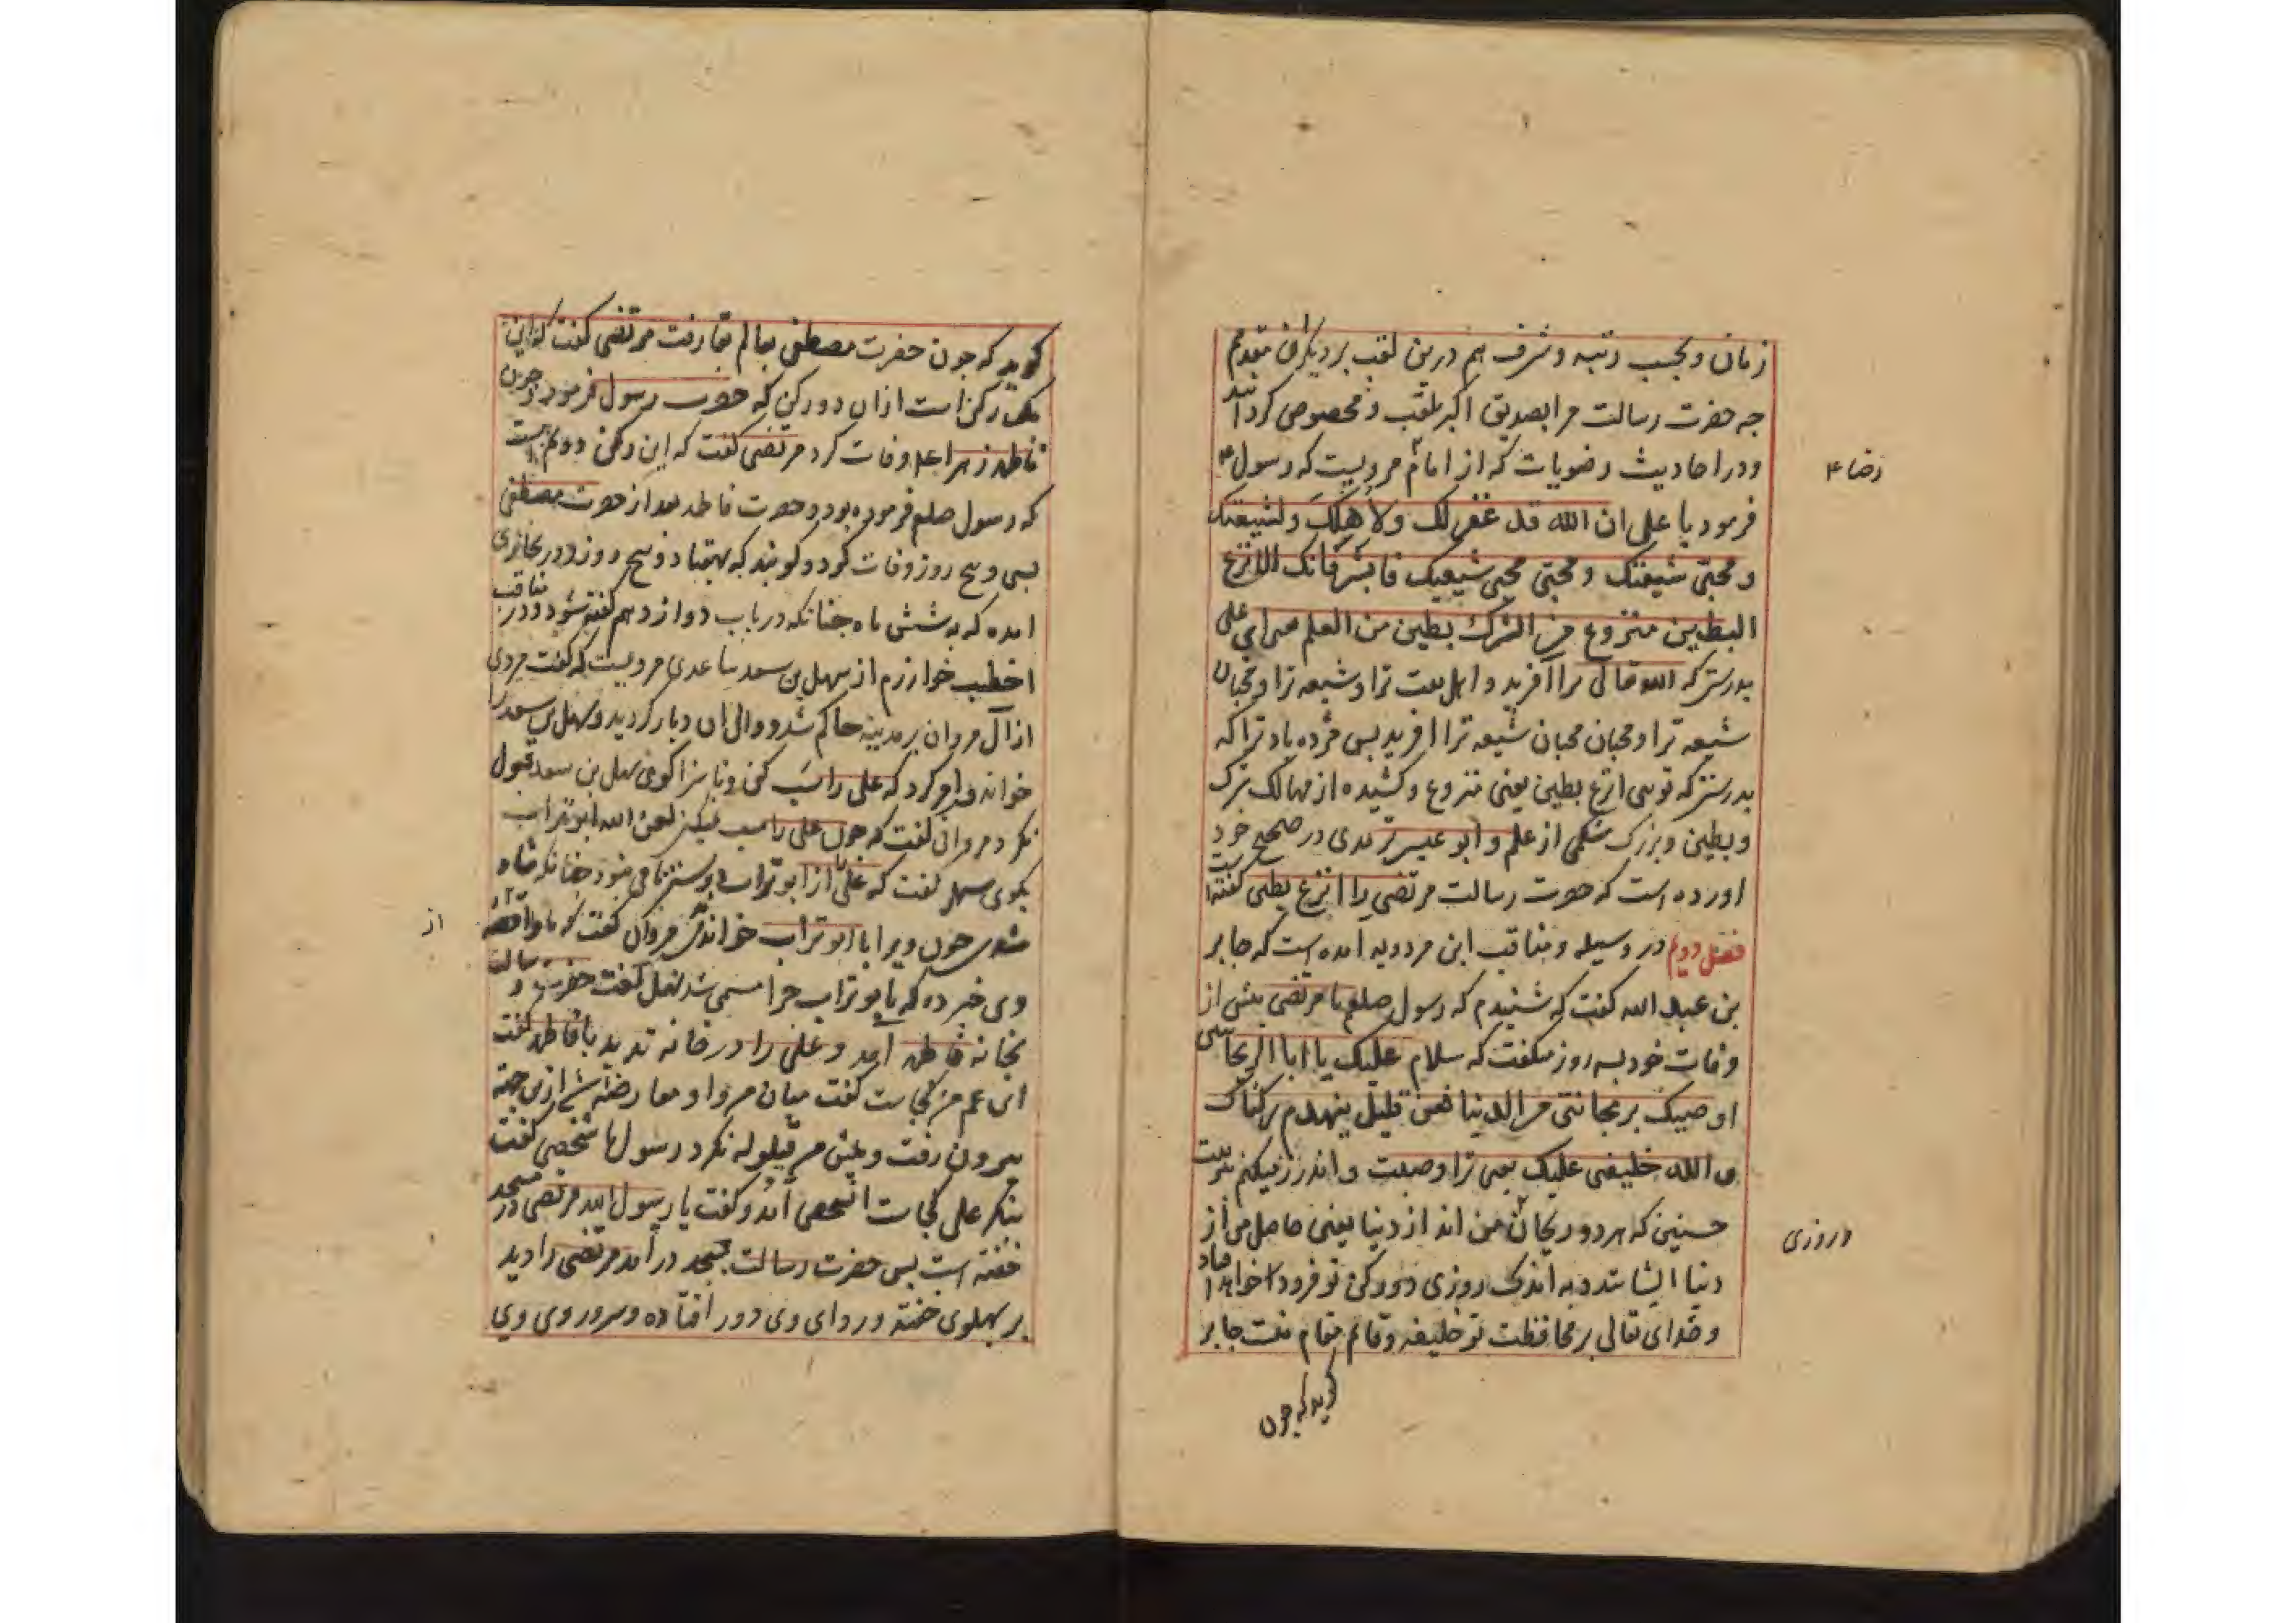 زمان و بحسب رتبه و شرف هم درین لقب بر دیگران مقدم
چه حضرت رسالت مرا بصدیق اکبر ملقب و مخصوص گردانید
و در احادیث رضویات که از امام مرویست که رسول
رضا ۴
فرمود یا علی ان الله قد غفر لک و لاهلک و لشیعتک
و محبی شیعتک و محبی محبی شیعتک فابشر فانک الانزع
البطین منزوع من الشرک بطین من العلم یعنی ای علی
بدرستی که الله تعالی مرا آفرید و اهل بیت ترا و شیعه ترا و محبان
شیعه ترا و محبان محبان شیعه ترا آفرید پس مژده باد ترا که
بدرستی که تویی انزع بطین یعنی منزوع و کشیده از مهالک شرک
و بطین و بزرگ شکمی از علم و ابو عیسی ترمدی در صحیح خود
اورده است که حضرت رسالت مرتضی را انزع بطین گفته است
فصل دویم در وسیله و مناقب ابن مردویه آمده است که جابر
بن عبد الله گفت که شنیدم که رسول صلعم با مرتضی پیش از
وفات خود بسه روز میگفت که سلام علیک یا ابا الریحانتین
اوصیک بریحانتی من الدنیا فعن قلیل ینهدم رکناک
و الله خلیفتی علیک یعنی ترا وصیت و اندرز میکنم
حسنین که هر دو ریحان من اند از دنیا یعنی حاصل من از
دنیا ایشانند و به اندک روزی دو رکن تو فرود خواهد افتاد
و خدای تعالی بر محافظت تو خلیفه و قائم مقام منست جابر
روزی
گوید که چون
گوید که چون حضرت مصطفی بعالم بقا رفت مرتضی گفت که این
یک رکن است ازان دو رکن که حضرت رسول فرمود و چون
فاطمه زهرا وفات کرد مرتضی گفت که این رکن دویم است
که رسول صلعم فرموده بود و حضرت فاطمه بعد از حضرت مصطفی
بسی و پنج روز وفات کرد و گویند که بهفتاد و پنج روز و در بخاری
امده که به شش ماه چنانکه در باب دوازدهم گفته شود و در مناقب
اخطب خوارزم از سهل بن سعد ساعدی مرویست که گفت مردی
از آل مروان بر مدینه حاکم شد و والی ان دیار گردید و سهل بن سعد را
خواند و امر کرد که علی را سب کن و ناسزا گوی سهل بن سعد قبول
نکرد مروانی گفت که چون علی را سب نمیکنی لعن الله ابو تراب
بگوی سهل گفت که علی از ابو تراب
از
وی خبر ده که بابو تراب چرا مسمی شد سهل گفت حضرت رسالت
بخانه فاطمه آمد و علی را در خانه ندید با فاطمه گفت
ابن عم من کجاست گفت میان من و او معارضه شد ازین جهت
بیرون رفت و پیش من قیلوله نکرد رسول با شخصی گفت
بنگر علی کجاست انشخص آمد و گفت یا رسول الله مرتضی در مسجد
خفته است پس حضرت رسالت بمسجد درآمد مرتضی را دید
بر پهلوی خفته و ردای وی دور افتاده و سر و روی وی